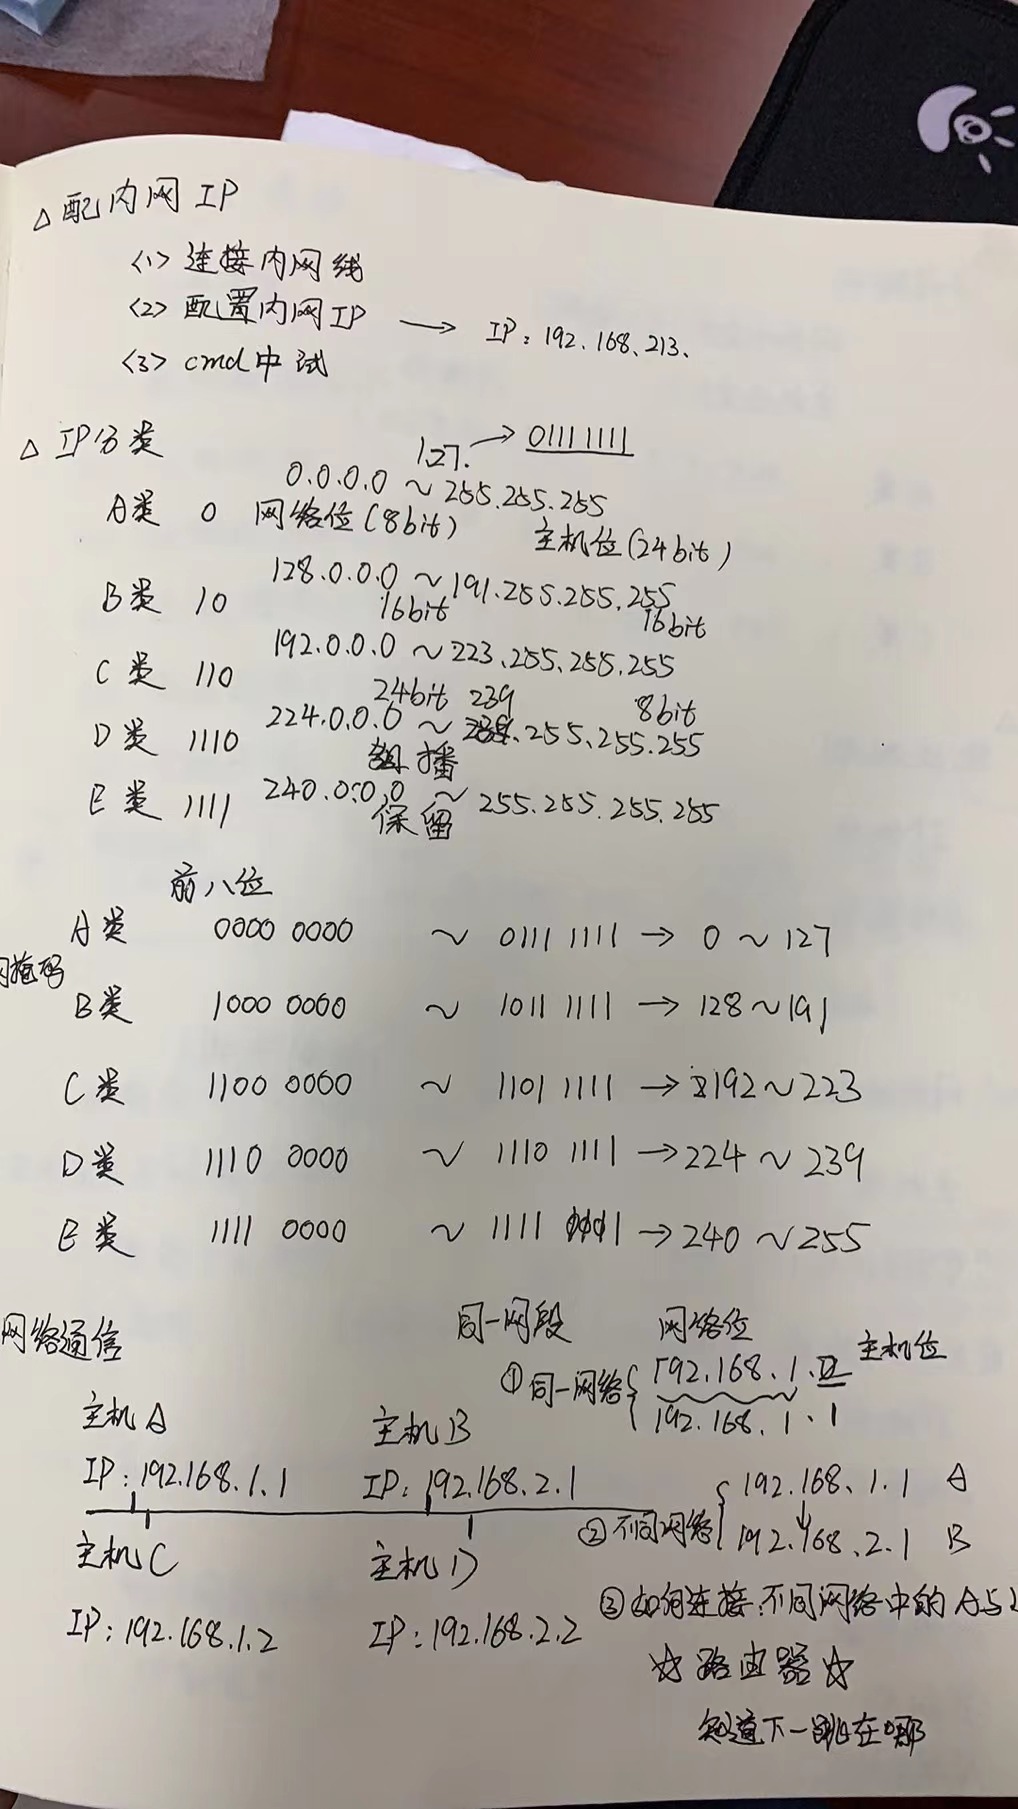 △ 配内网 IP
<1> 连接内网线
<2> 配置内网IP → IP: 192.168.213.
<3> cmd中试
△ IP分类
127. → 01111111
0.0.0.0 ~ 255.255.255
A类 0 网络位(8bit) 主机位(24bit)
128.0.0.0 ~ 191.255.255.255
B类 10 16bit 16bit
192.0.0.0 ~ 223.255.255.255
C类 110 24bit 8bit
239
224.0.0.0 ~ .255.255.255
D类 1110 组播
240.0.0.0 ~ 255.255.255.255
E类 1111 保留
前八位
A类 0000 0000 ~ 0111 1111 → 0 ~ 127
掩码
B类 1000 0000 ~ 1011 1111 → 128 ~ 191
C类 1100 0000 ~ 1101 1111 → 192 ~ 223
D类 1110 0000 ~ 1110 1111 → 224 ~ 239
E类 1111 0000 ~ 1111 1111 → 240 ~ 255
网络通信 同一网段 网络位 主机位
① 同一网络 { 192.168.1.
192.168.1.1
主机A 主机B
IP: 192.168.1.1 IP: 192.168.2.1
② 不同网络 { 192.168.1.1 A
192.168.2.1 B
主机C 主机D
IP: 192.168.1.2 IP: 192.168.2.2
③ 如何连接不同网络中的A与
☆路由器☆
知道下一跳在哪